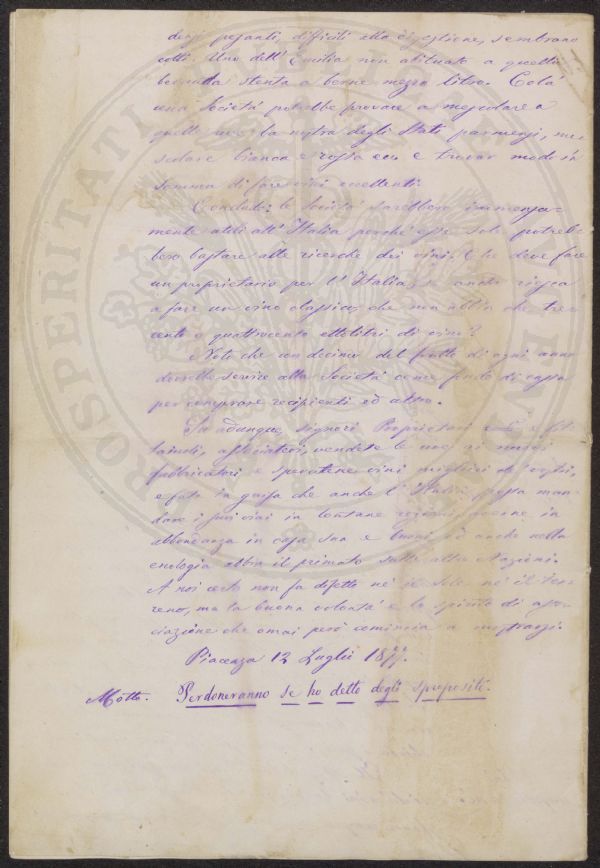 densi pesanti, difficili alla digestione, sembrano
cotti. Uno dell' Emilia non abituato a quella
bevanda stenta a berne mezzo litro. Colà
una Società potrebbe provare a mescolare a
quelle uve la nostra degli Stati parmensi, me-
scolare bianca e rossa ecc e trovar modo in
somma di fare vini eccellenti.
Concludo: le Società sarebbero immensa-
mente utili all' Italia perché esse sole potreb-
bero bastare alle ricerche dei vini. Che deve fare
un proprietario per l' Italia, se anche riesca
a fare un vino classico, che non abbia che tre-
cento o quattrocento ettolitri di vino?
Noto che un decimo del frutto di ogni anno
dovrebbe servire alla Società come fondo di cassa
per comprare recipienti ed altro.
Su adunque signori Proprietari e fit-
tainoli, associatevi, vendete le uve ai nuovi
fabbricatori e speratene vini migliori de' vostri,
e fate in guisa che anche l' Italia possa man-
dare i suoi vini in lontane regioni, averne in
abbondanza in casa sua e buoni ed anche nella
enologia abbia il primato sulle altre Nazioni.
A noi certo non fa difetto nè il sole nè il ter-
reno, ma la buona volontà e lo spirito di asso-
ciazione che omai però comincia a mostrarsi.
Piacenza 12 Luglio 1877.
Motto. Perdoneranno se ho detto degli spropositi.
PROSPERITATI